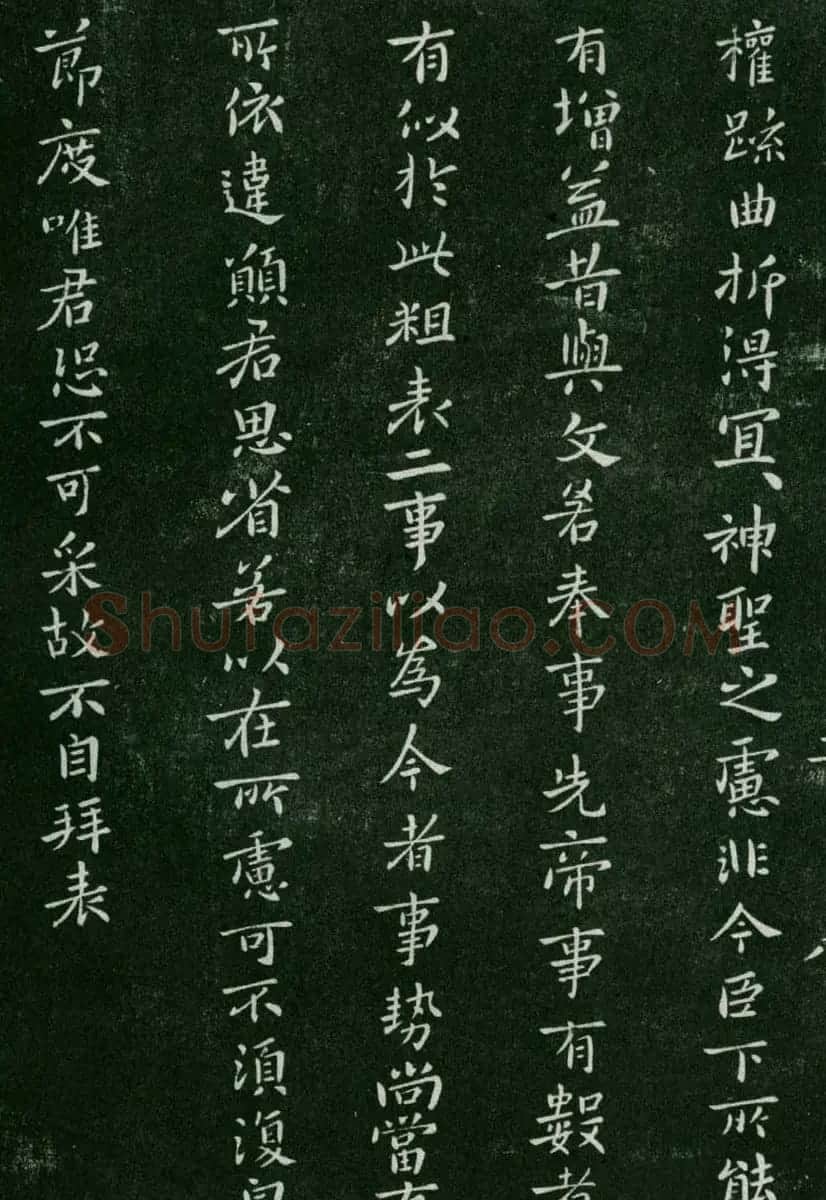 權踈曲折得冝、神聖之慮非今臣下所能
有增益昔與文若奉事先帝事有數者
有似於此粗表二事以為今者事勢尚當有
所依違願君思省若以在所慮可不須復
節度唯君恐不可采故不自拜表
Shufaziliao.COM